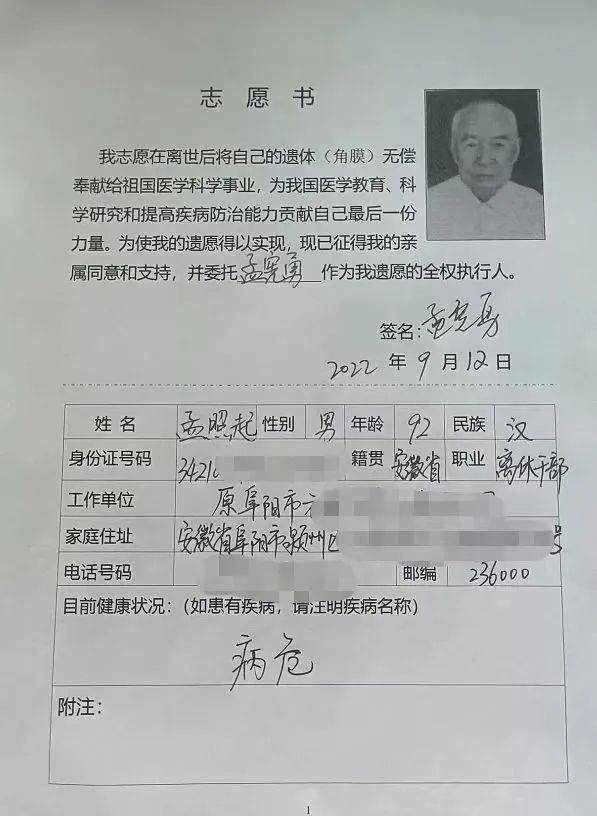 志愿书
我志愿在离世后将自己的遗体（角膜）无偿
奉献给祖国医学科学事业，为我国医学教育、科
学研究和提高疾病防治能力贡献自己最后一份
力量。为使我的遗愿得以实现，现已征得我的亲
属同意和支持，并委托孟宪勇作为我遗愿的全权执行人。
签名：孟宪勇
2022 年 9 月 12 日
姓名 孟照起 性别 男 年龄 92 民族 汉
身份证号码 3421 籍贯 安徽省 职业 离休干部
工作单位 原阜阳市
家庭住址 安徽省阜阳市颍州区 号
电话号码 邮编 236000
目前健康状况：（如患有疾病，请注明疾病名称）
病危
附注：
1